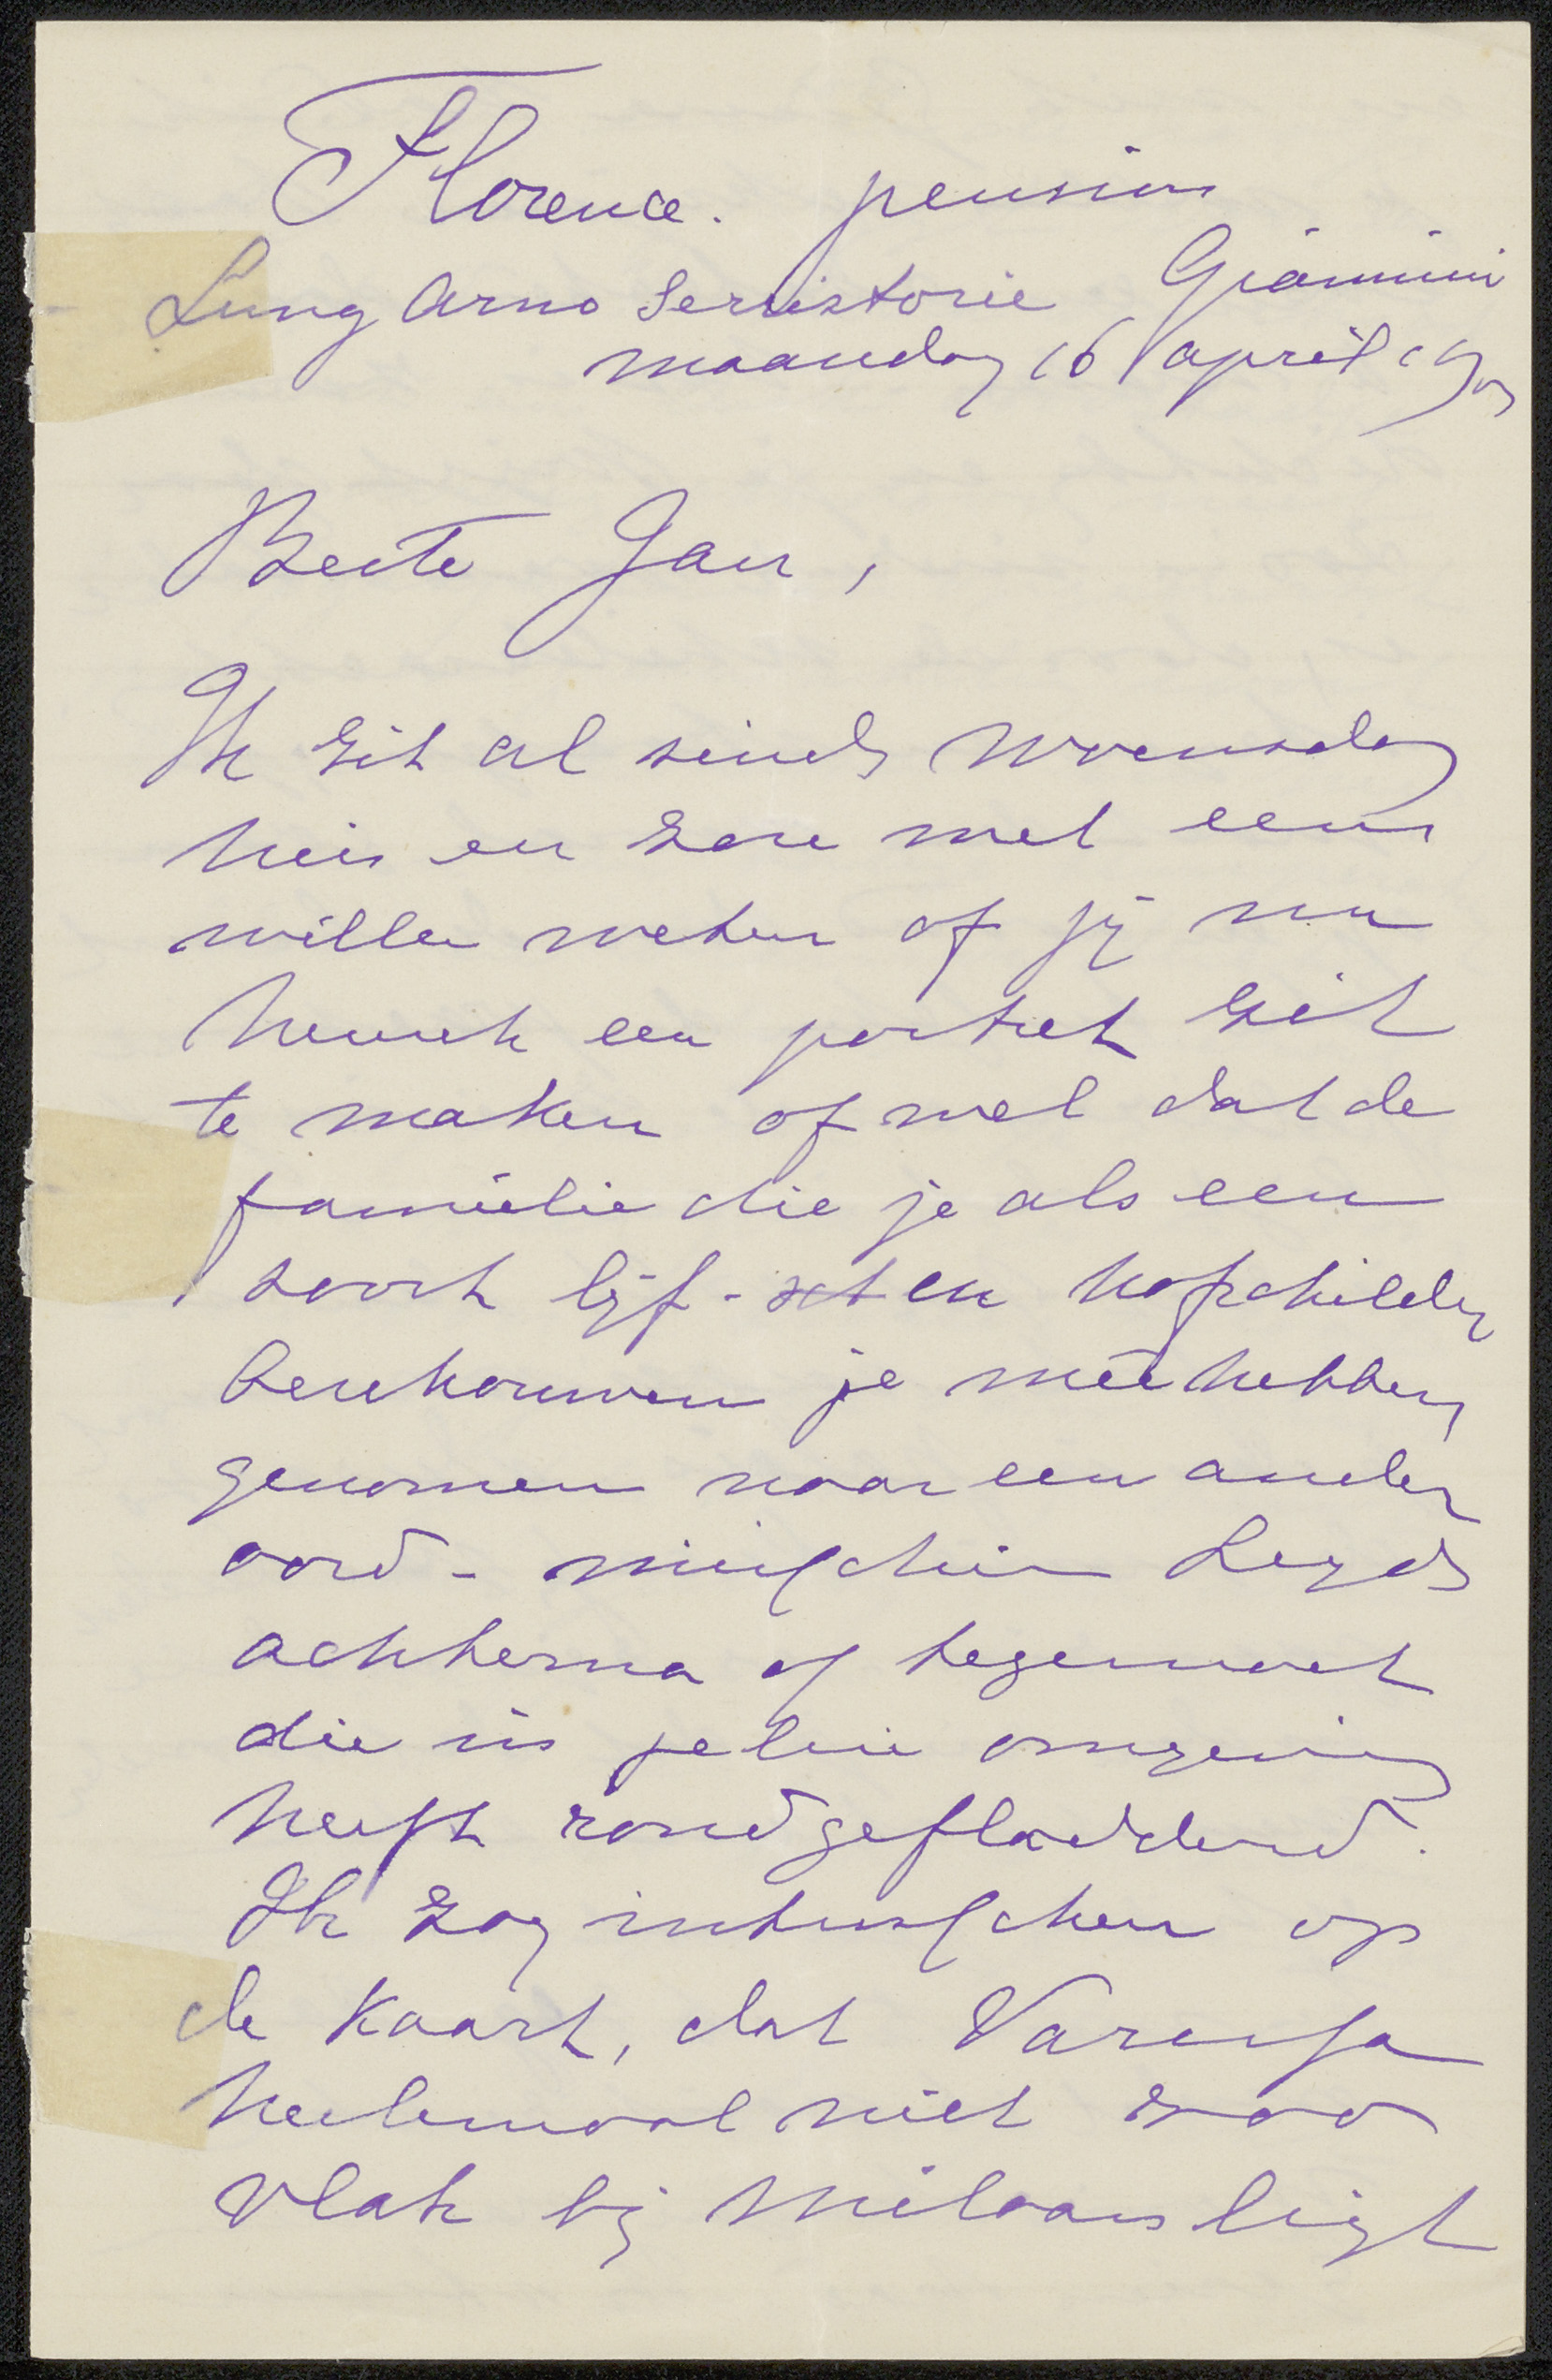 Florence. pension
Lung Arno Serristorie Giannini
maandag 16 april
Beste Jan,
Ik zit al sinds woensdag
hier en zou wel eens
willen weten of jij nu
heusch een portret zit
te maken of wel dat de
familie die je als een
soort lijf- en hofschilder
beschouwen je mée hebben
genomen naar een ander
oord - misschien
achterna of tegemoet
die in jelui omgeving
heeft rondgefladderd.
Ik zag intusschen op
de kaart, dat
heelemaal niet zoo
vlak bij Milaan ligt